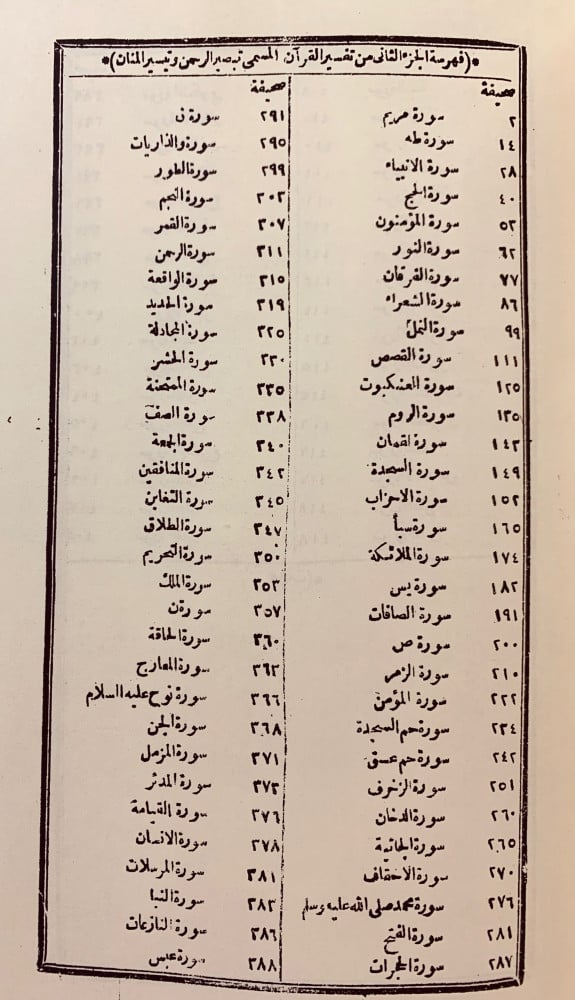 *(فهرسة الجزء الثانى من تفسير القرآن المسمى تبصير الرحمن وتيسير المنان)*
صحيفة
٢ سورة مريم
١٤ سورة طه
٢٨ سورة الانبياء
٤٠ سورة الحج
٥٣ سورة المؤمنون
٦٢ سورة النور
٧٧ سورة الفرقان
٨٦ سورة الشعراء
٩٩ سورة النمل
١١١ سورة القصص
١٢٥ سورة العنكبوت
١٣٥ سورة الروم
١٤٣ سورة لقمان
١٤٩ سورة السجدة
١٥٢ سورة الاحزاب
١٦٥ سورة سبأ
١٧٤ سورة الملائكة
١٨٢ سورة يس
١٩١ سورة الصافات
٢٠٠ سورة ص
٢١٠ سورة الزمر
٢٢٢ سورة المؤمن
٢٣٤ سورة حم السجدة
٢٤٢ سورة حم عسق
٢٥١ سورة الزخرف
٢٦٠ سورة الدخان
٢٦٥ سورة الجاثية
٢٧٠ سورة الاحقاف
٢٧٦ سورة محمد صلى الله عليه وسلم
٢٨١ سورة الفتح
٢٨٧ سورة الحجرات
صحيفة
٢٩١ سورة ق
٢٩٥ سورة والذاريات
٢٩٩ سورة الطور
٣٠٣ سورة النجم
٣٠٧ سورة القمر
٣١١ سورة الرحمن
٣١٥ سورة الواقعة
٣١٩ سورة الحديد
٣٢٥ سورة المجادلة
٣٣٠ سورة الحشر
٣٣٥ سورة الممتحنة
٣٣٨ سورة الصف
٣٤٠ سورة الجمعة
٣٤٢ سورة المنافقين
٣٤٥ سورة التغابن
٣٤٧ سورة الطلاق
٣٥٠ سورة التحريم
٣٥٣ سورة الملك
٣٥٧ سورة ن
٣٦٠ سورة الحاقة
٣٦٣ سورة المعارج
٣٦٦ سورة نوح عليه السلام
٣٦٨ سورة الجن
٣٧١ سورة المزمل
٣٧٣ سورة المدثر
٣٧٦ سورة القيامة
٣٧٨ سورة الانسان
٣٨١ سورة المرسلات
٣٨٣ سورة النبا
٣٨٦ سورة النازعات
٣٨٨ سورة عبس